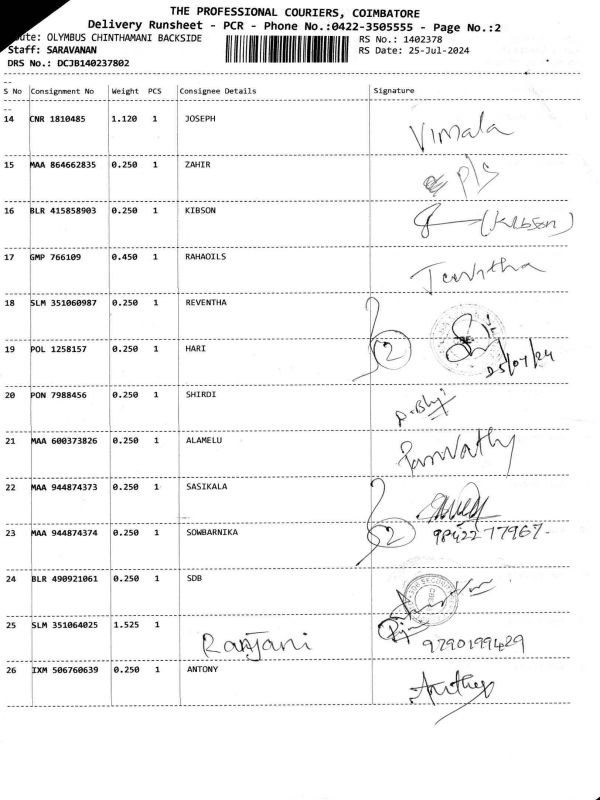 THE PROFESSIONAL COURIERS, COIMBATORE
Delivery Runsheet - PCR - Phone No.:0422-3505555 - Page No.:2
ute: OLYMBUS CHINTHAMANI BACKSIDE RS No.: 1402378
Staff: SARAVANAN RS Date: 25-Jul-2024
DRS No.: DCJB140237802
S No Consignment No Weight PCS Consignee Details Signature
14 CNR 1810485 1.120 1 JOSEPH Vimala
15 MAA 864662835 0.250 1 ZAHIR P/S
16 BLR 415858903 0.250 1 KIBSON
17 GMP 766109 0.450 1 RAHAOILS
18 SLM 351060987 0.250 1 REVENTHA
19 POL 1258157 0.250 1 HARI 2 25/07/24
20 PON 7988456 0.250 1 SHIRDI
21 MAA 600373826 0.250 1 ALAMELU
22 MAA 944874373 0.250 1 SASIKALA
23 MAA 944874374 0.250 1 SOWBARNIKA 2 9842277967
24 BLR 490921061 0.250 1 SDB
25 SLM 351064025 1.525 1 Ranjani 9290199429
26 IXM 506760639 0.250 1 ANTONY